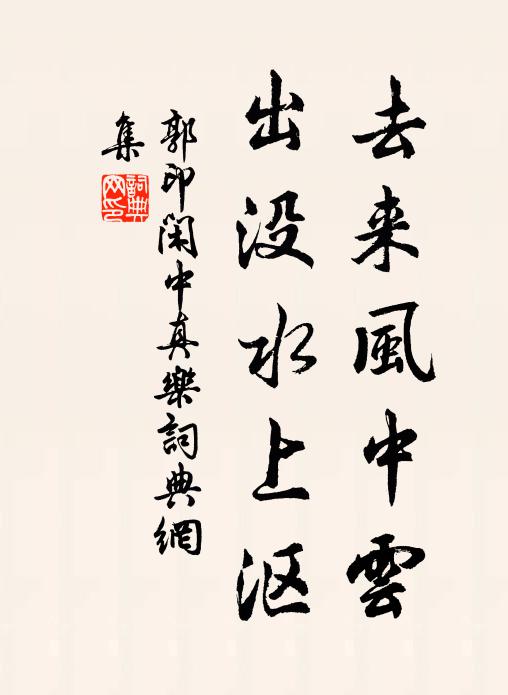 去来風中雲
出没水上沤
郭印閑中真樂詞典網
集
詞典
网印